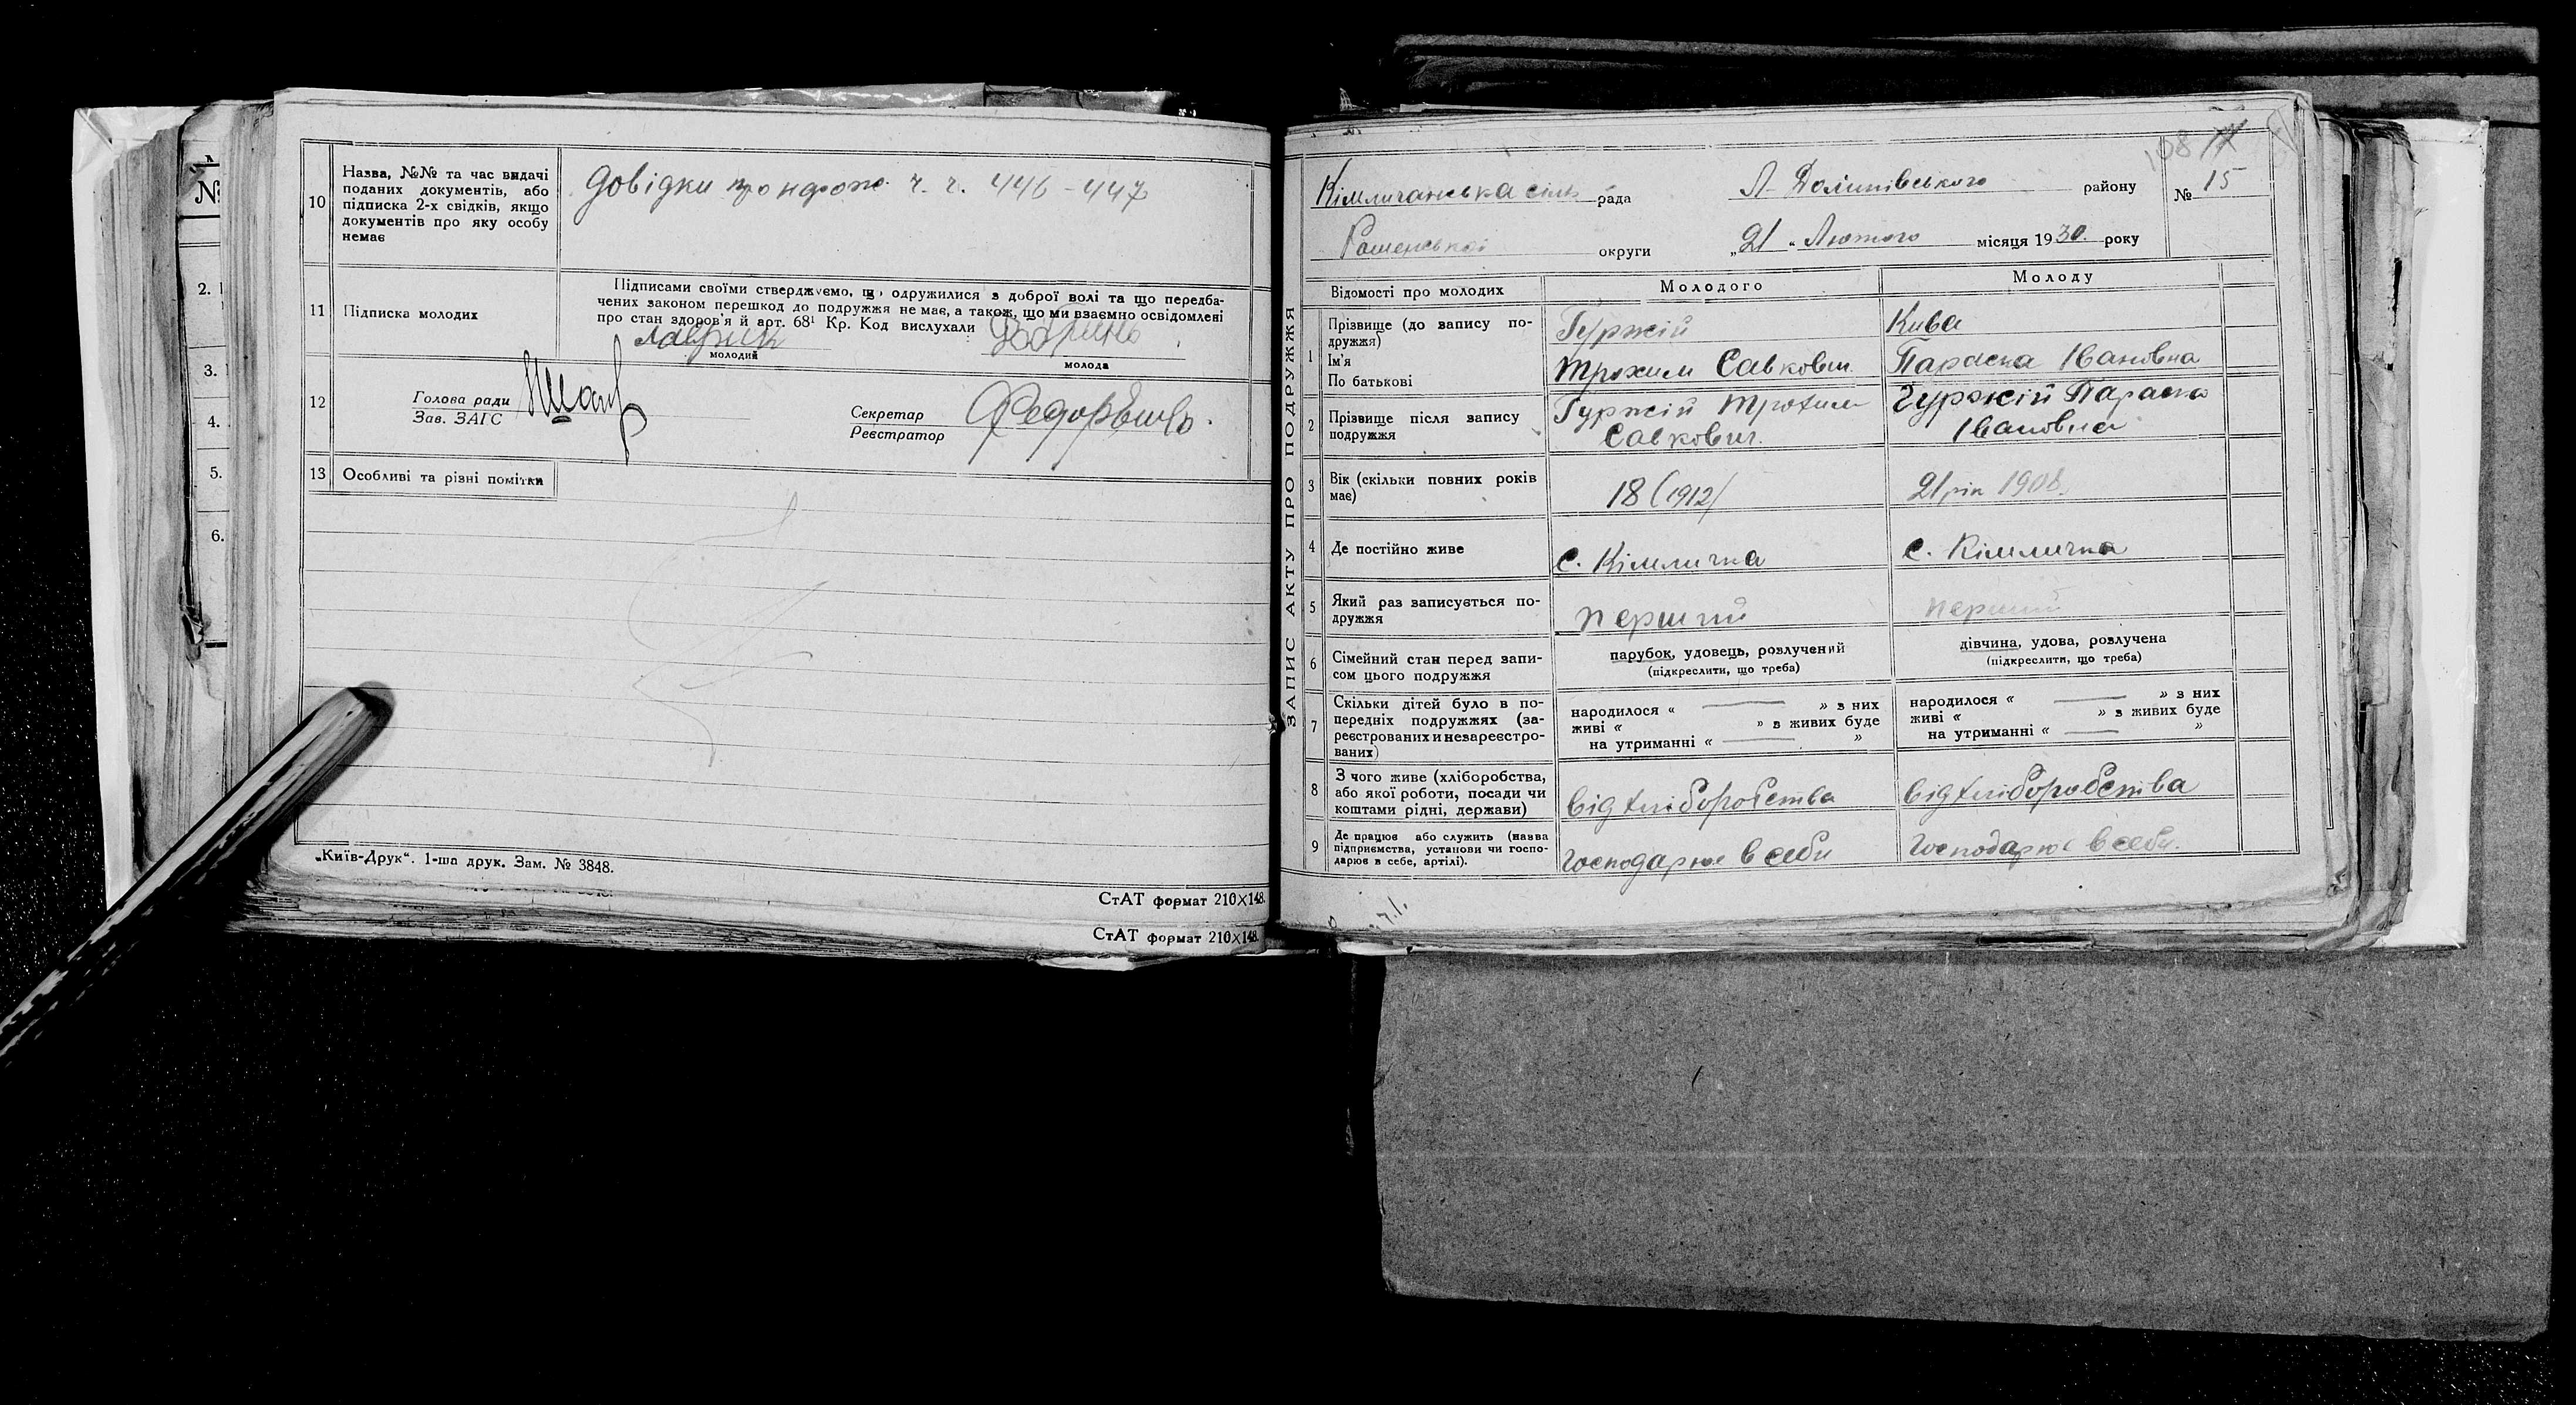 10
Назва, №№ та час видачі
поданих документів, або
підписка 2-х свідків, якщо
документів про яку особу
немає
Довідки про народж. ч. ч. 446 - 447
11
Підписка молодих
Підписами своїми стверджуємо, що одружилися з доброї волі та що передба-
чених законом перешкод до подружжя не має, а також, що ми взаємно освідомлені
про стан здоров'я й арт. 68¹ Кр. Код вислухали
Лаврин
молодий
молода
12
Голова ради
Зав. ЗАГС
Секретар
Реєстратор
13
Особливі та різні помітки
„Київ-Друк“. 1-ша друк. Зам. № 3848.
СтАТ формат 210×148.
СтАТ формат 210×148.
№
2.
3.
4.
5.
6.
108
Кімличанська сіль рада
Л-Долинівського району
№ 15
округи
„21 “ Лютого місяця 1930. року
ЗАПИС АКТУ ПРО ПОДРУЖЖЯ
Відомості про молодих
Молодого
Молоду
1
Прізвище (до запису по-
дружжя)
Ім'я
По батькові
Гуржій
Трохим Савкович
Кива
Параска Івановна
2
Прізвище після запису
подружжя
Гуржій Трохим
Савкович
Гуржій Параска
Івановна
3
Вік (скільки повних років
має)
18 (1912)
21 рік 1908.
4
Де постійно живе
с. Кімличка
с. Кімличка
5
Який раз записується по-
дружжя
перший
перший
6
Сімейний стан перед запи-
сом цього подружжя
парубок, удовець, розлучений
(підкреслити, що треба)
дівчина, удова, розлучена
(підкреслити, що треба)
7
Скільки дітей було в по-
передніх подружжях (за-
реєстрованих и незареєстро-
ваних)
народилося « — » з них
живі « » з живих буде
на утриманні « — »
народилося « — » з них
живі « » з живих буде
на утриманні « — »
8
З чого живе (хліборобства,
або якої роботи, посади чи
коштами рідні, держави)
від хліборобства
від хліборобства
9
Де працює або служить (назва
підприємства, установи чи госпо-
дарює в себе, артілі).
господарює в себи
господарює в себи.